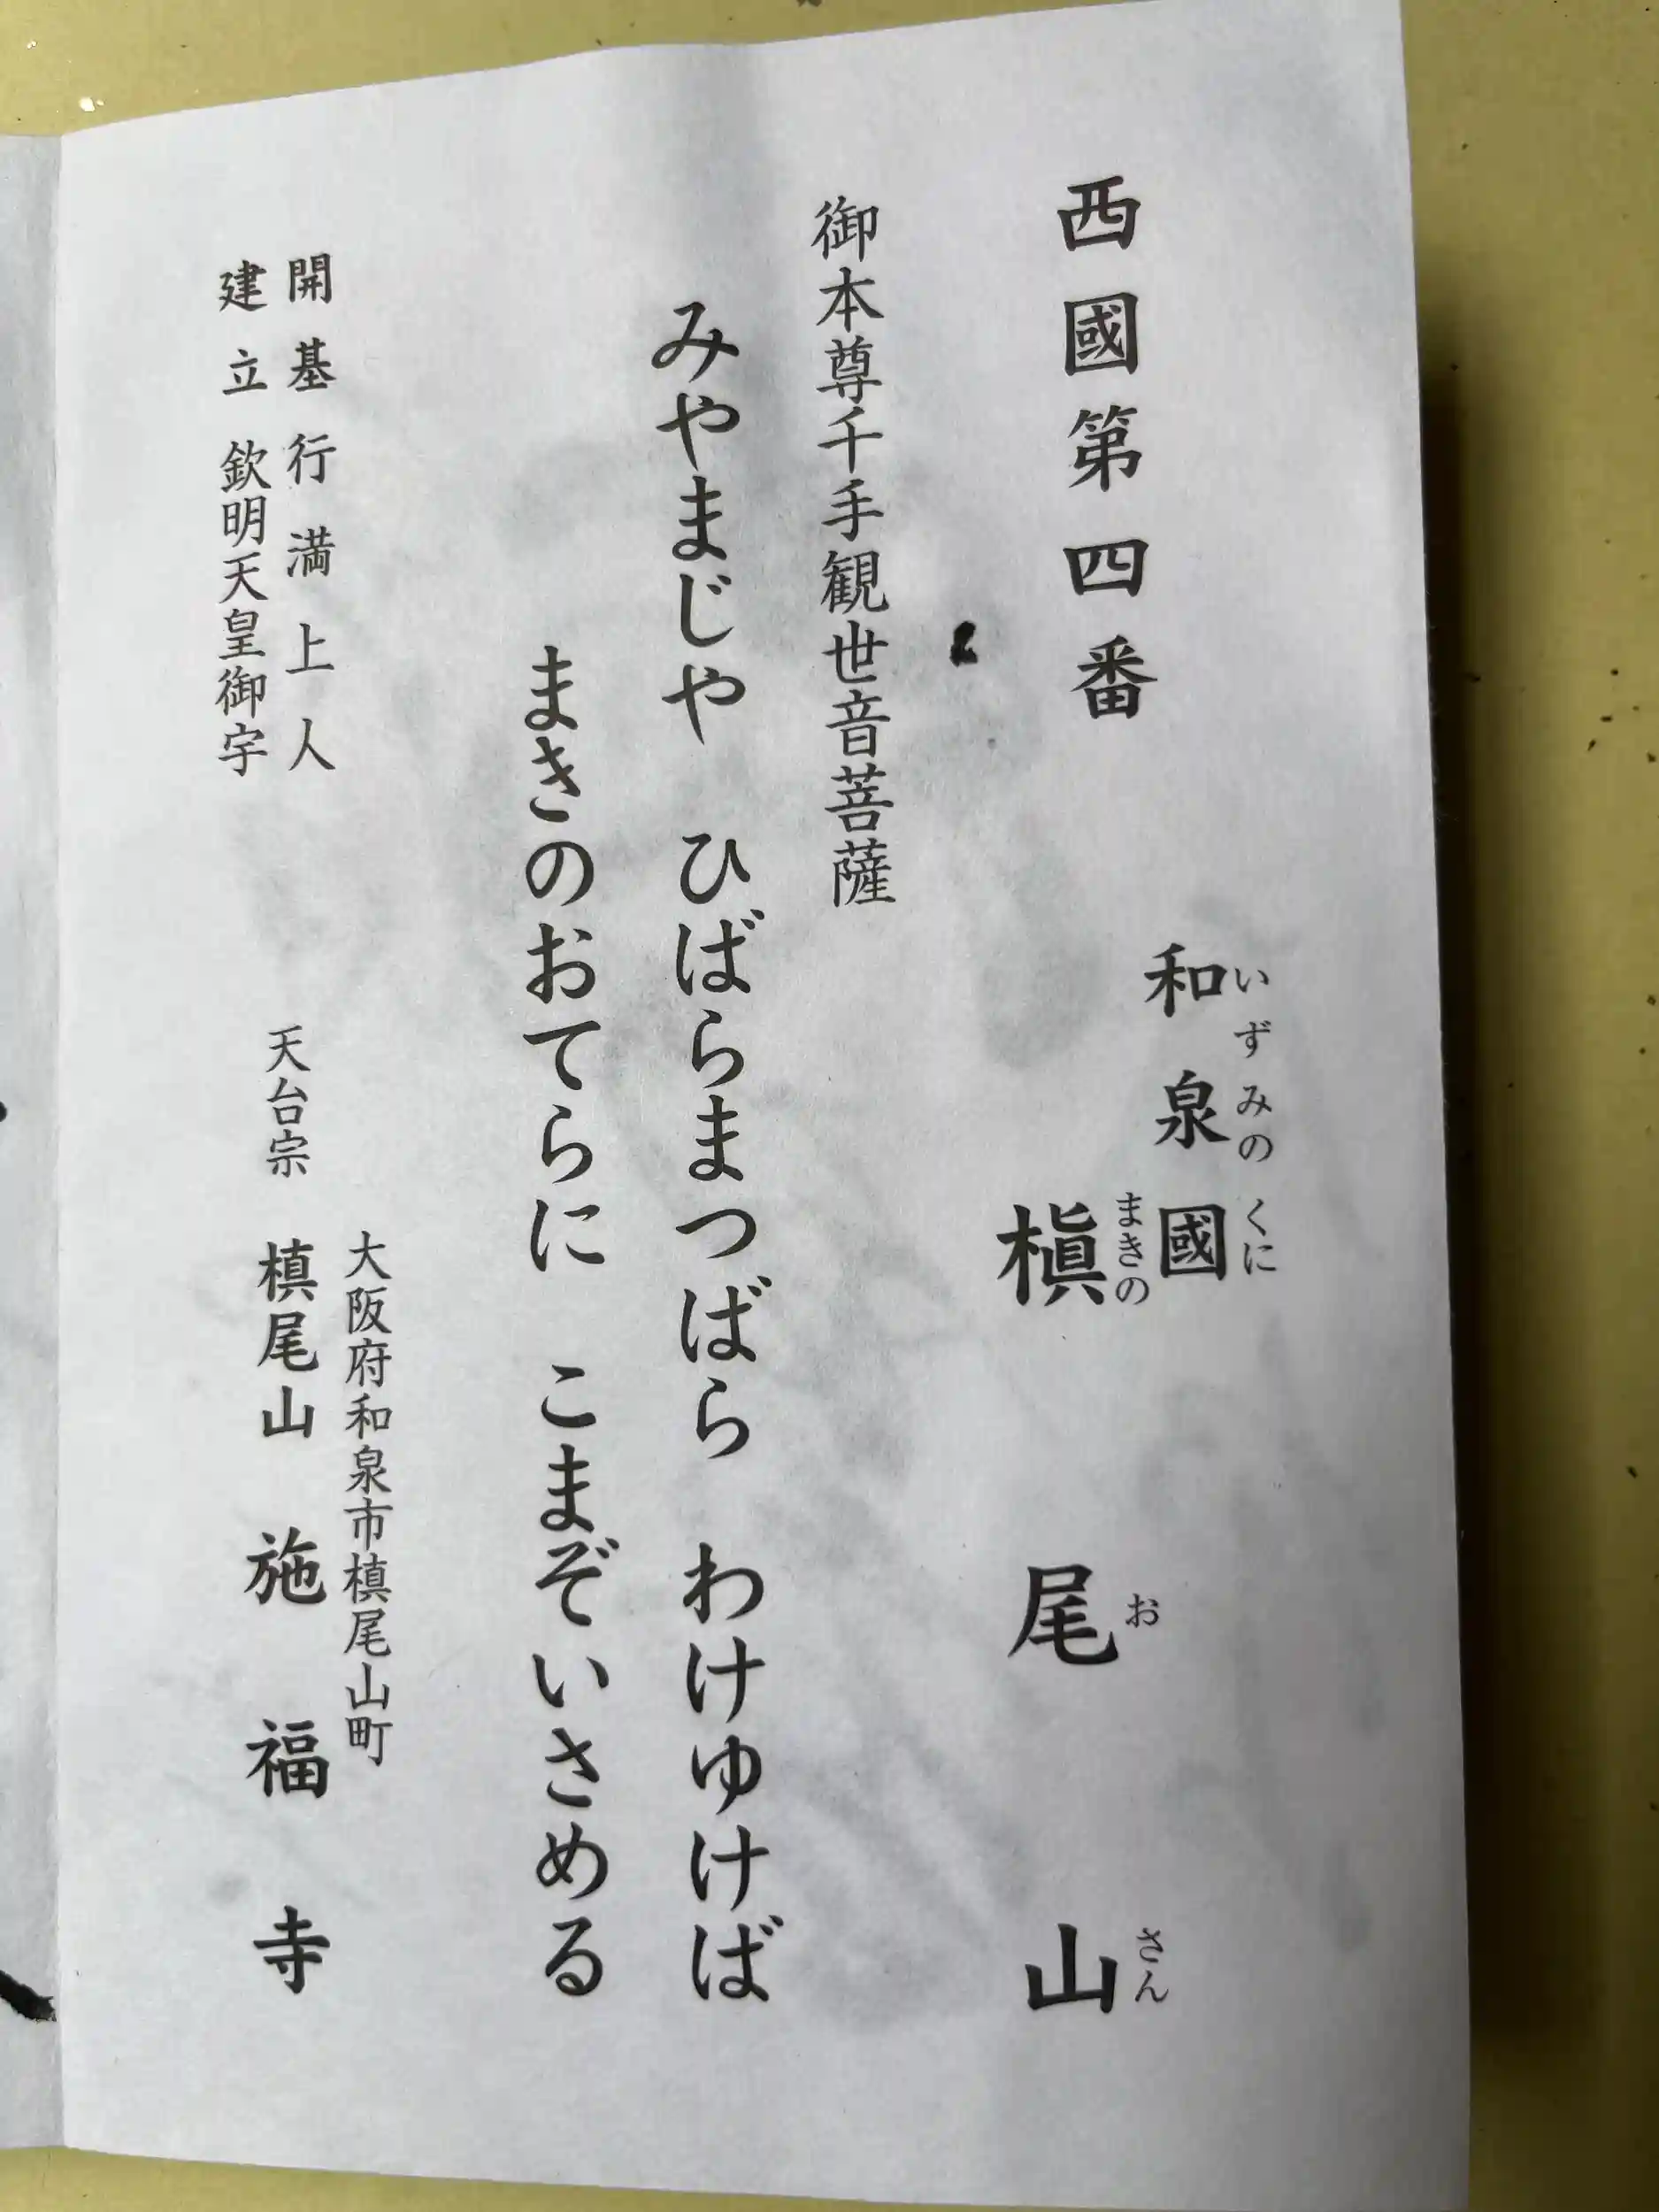 西國第四番
和泉國
いずみの くに
槇尾山
まきの お さん
御本尊千手観世音菩薩
みやまじや ひばらまつばら わけゆけば
まきのおてらに こまぞいさめる
開基行満上人
建立 欽明天皇御宇
大阪府和泉市槙尾山町
天台宗 槙尾山 施福寺